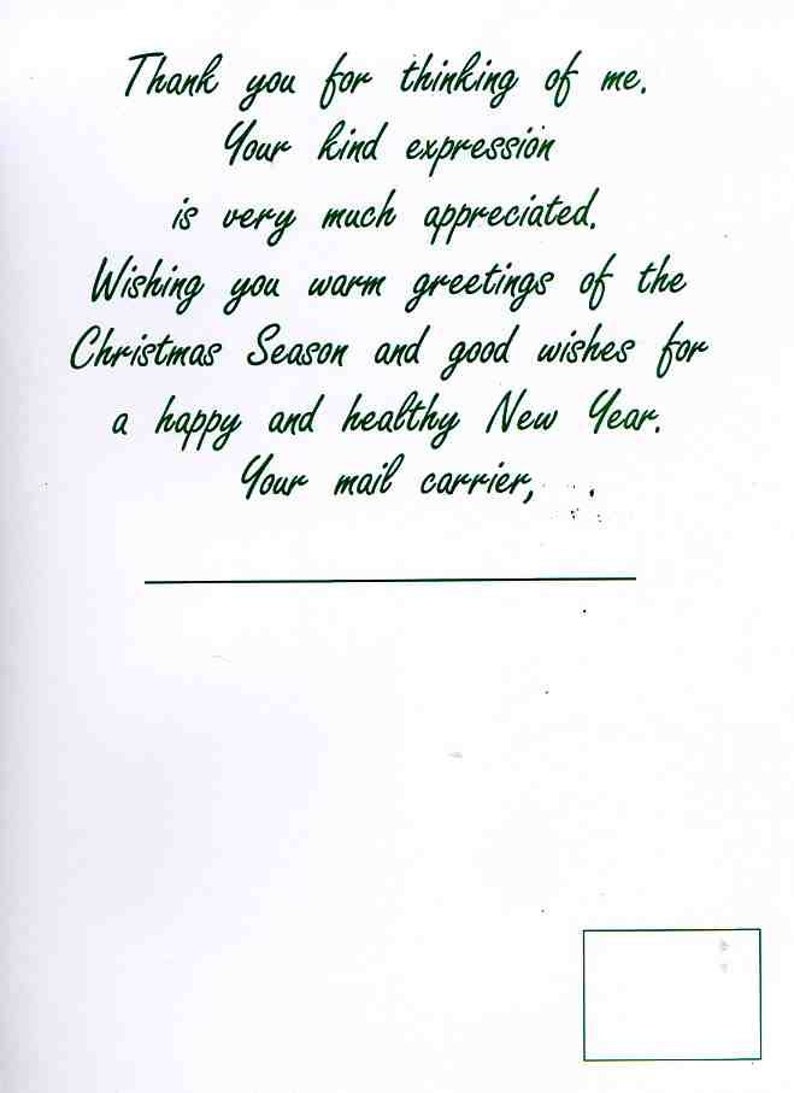 Thank you for thinking of me.
Your kind expression
is very much appreciated.
Wishing you warm greetings of the
Christmas Season and good wishes for
a happy and healthy New Year.
Your mail carrier,